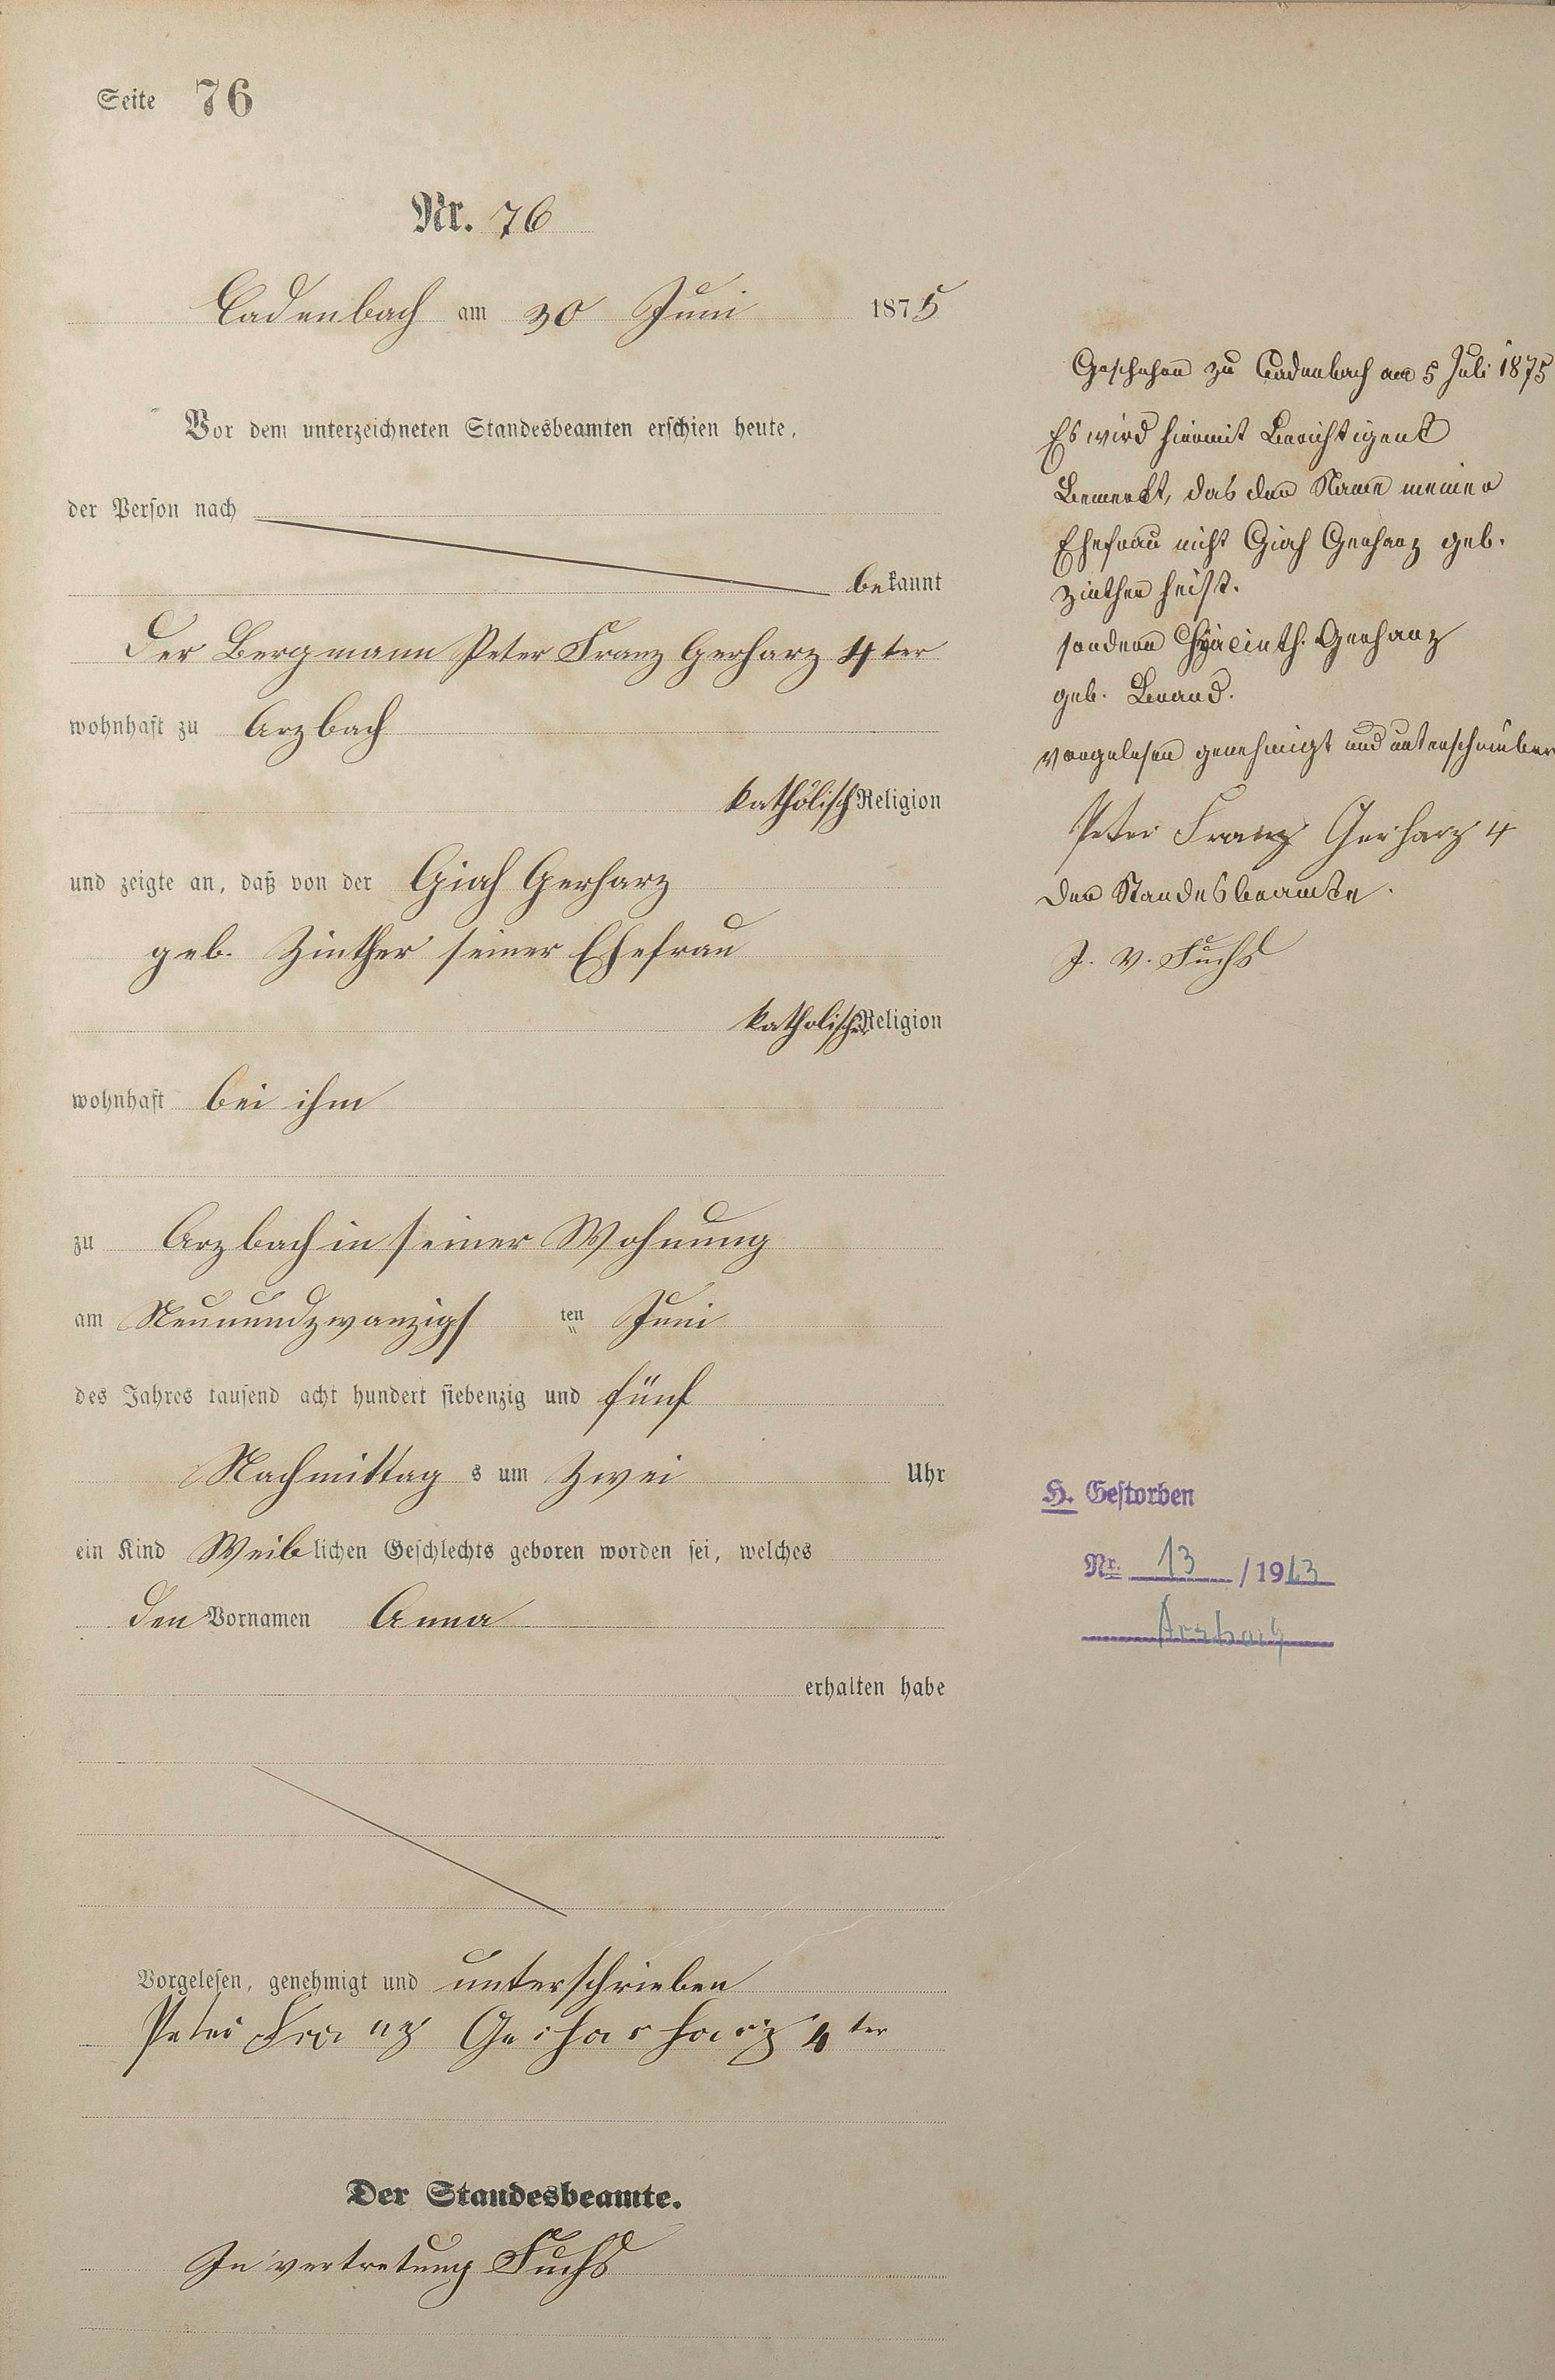 Seite 76
Nr. 76
Cadenbach am 30 Juni 1875
Vor dem unterzeichneten Standesbeamten erschien heute,
der Person nach
bekannt
Der Bergmann Peter Franz Gerharz 4ter
wohnhaft zu Arzbach
katholisch Religion
und zeigte an, daß von der Giah Gerharz
geb. Zinther seiner Ehefrau
katholischer Religion
wohnhaft bei ihm
zu Arzbach in seiner Wohnung
am Neunundzwanzigs ten Juni
des Jahres tausend acht hundert siebenzig und fünf
Nachmittag s um Zwei Uhr
ein Kind Weiblichen Geschlechts geboren worden sei, welches
den Vornamen Anna
erhalten habe
Vorgelesen, genehmigt und unterschrieben
Peter Franz Gerharharz 4ter
Der Standesbeamte.
In vertretung Fuchs
Geschehen zu Cadenbach am 5 Juli 1875
Es wird hiermit Berichtigent
Bemerkt, das der Name meiner
Ehefrau nicht Giah Gerharz geb.
Zinther heist.
sondern Hyacinth. Gerharz
geb. Brand.
vorgelesen genehmigt und unterschrieben
Peter Franz Gerharz 4
Der Standesbeamte.
J. V. Fuchs
H. Gestorben
Nr. 13 / 1913
Arzbach